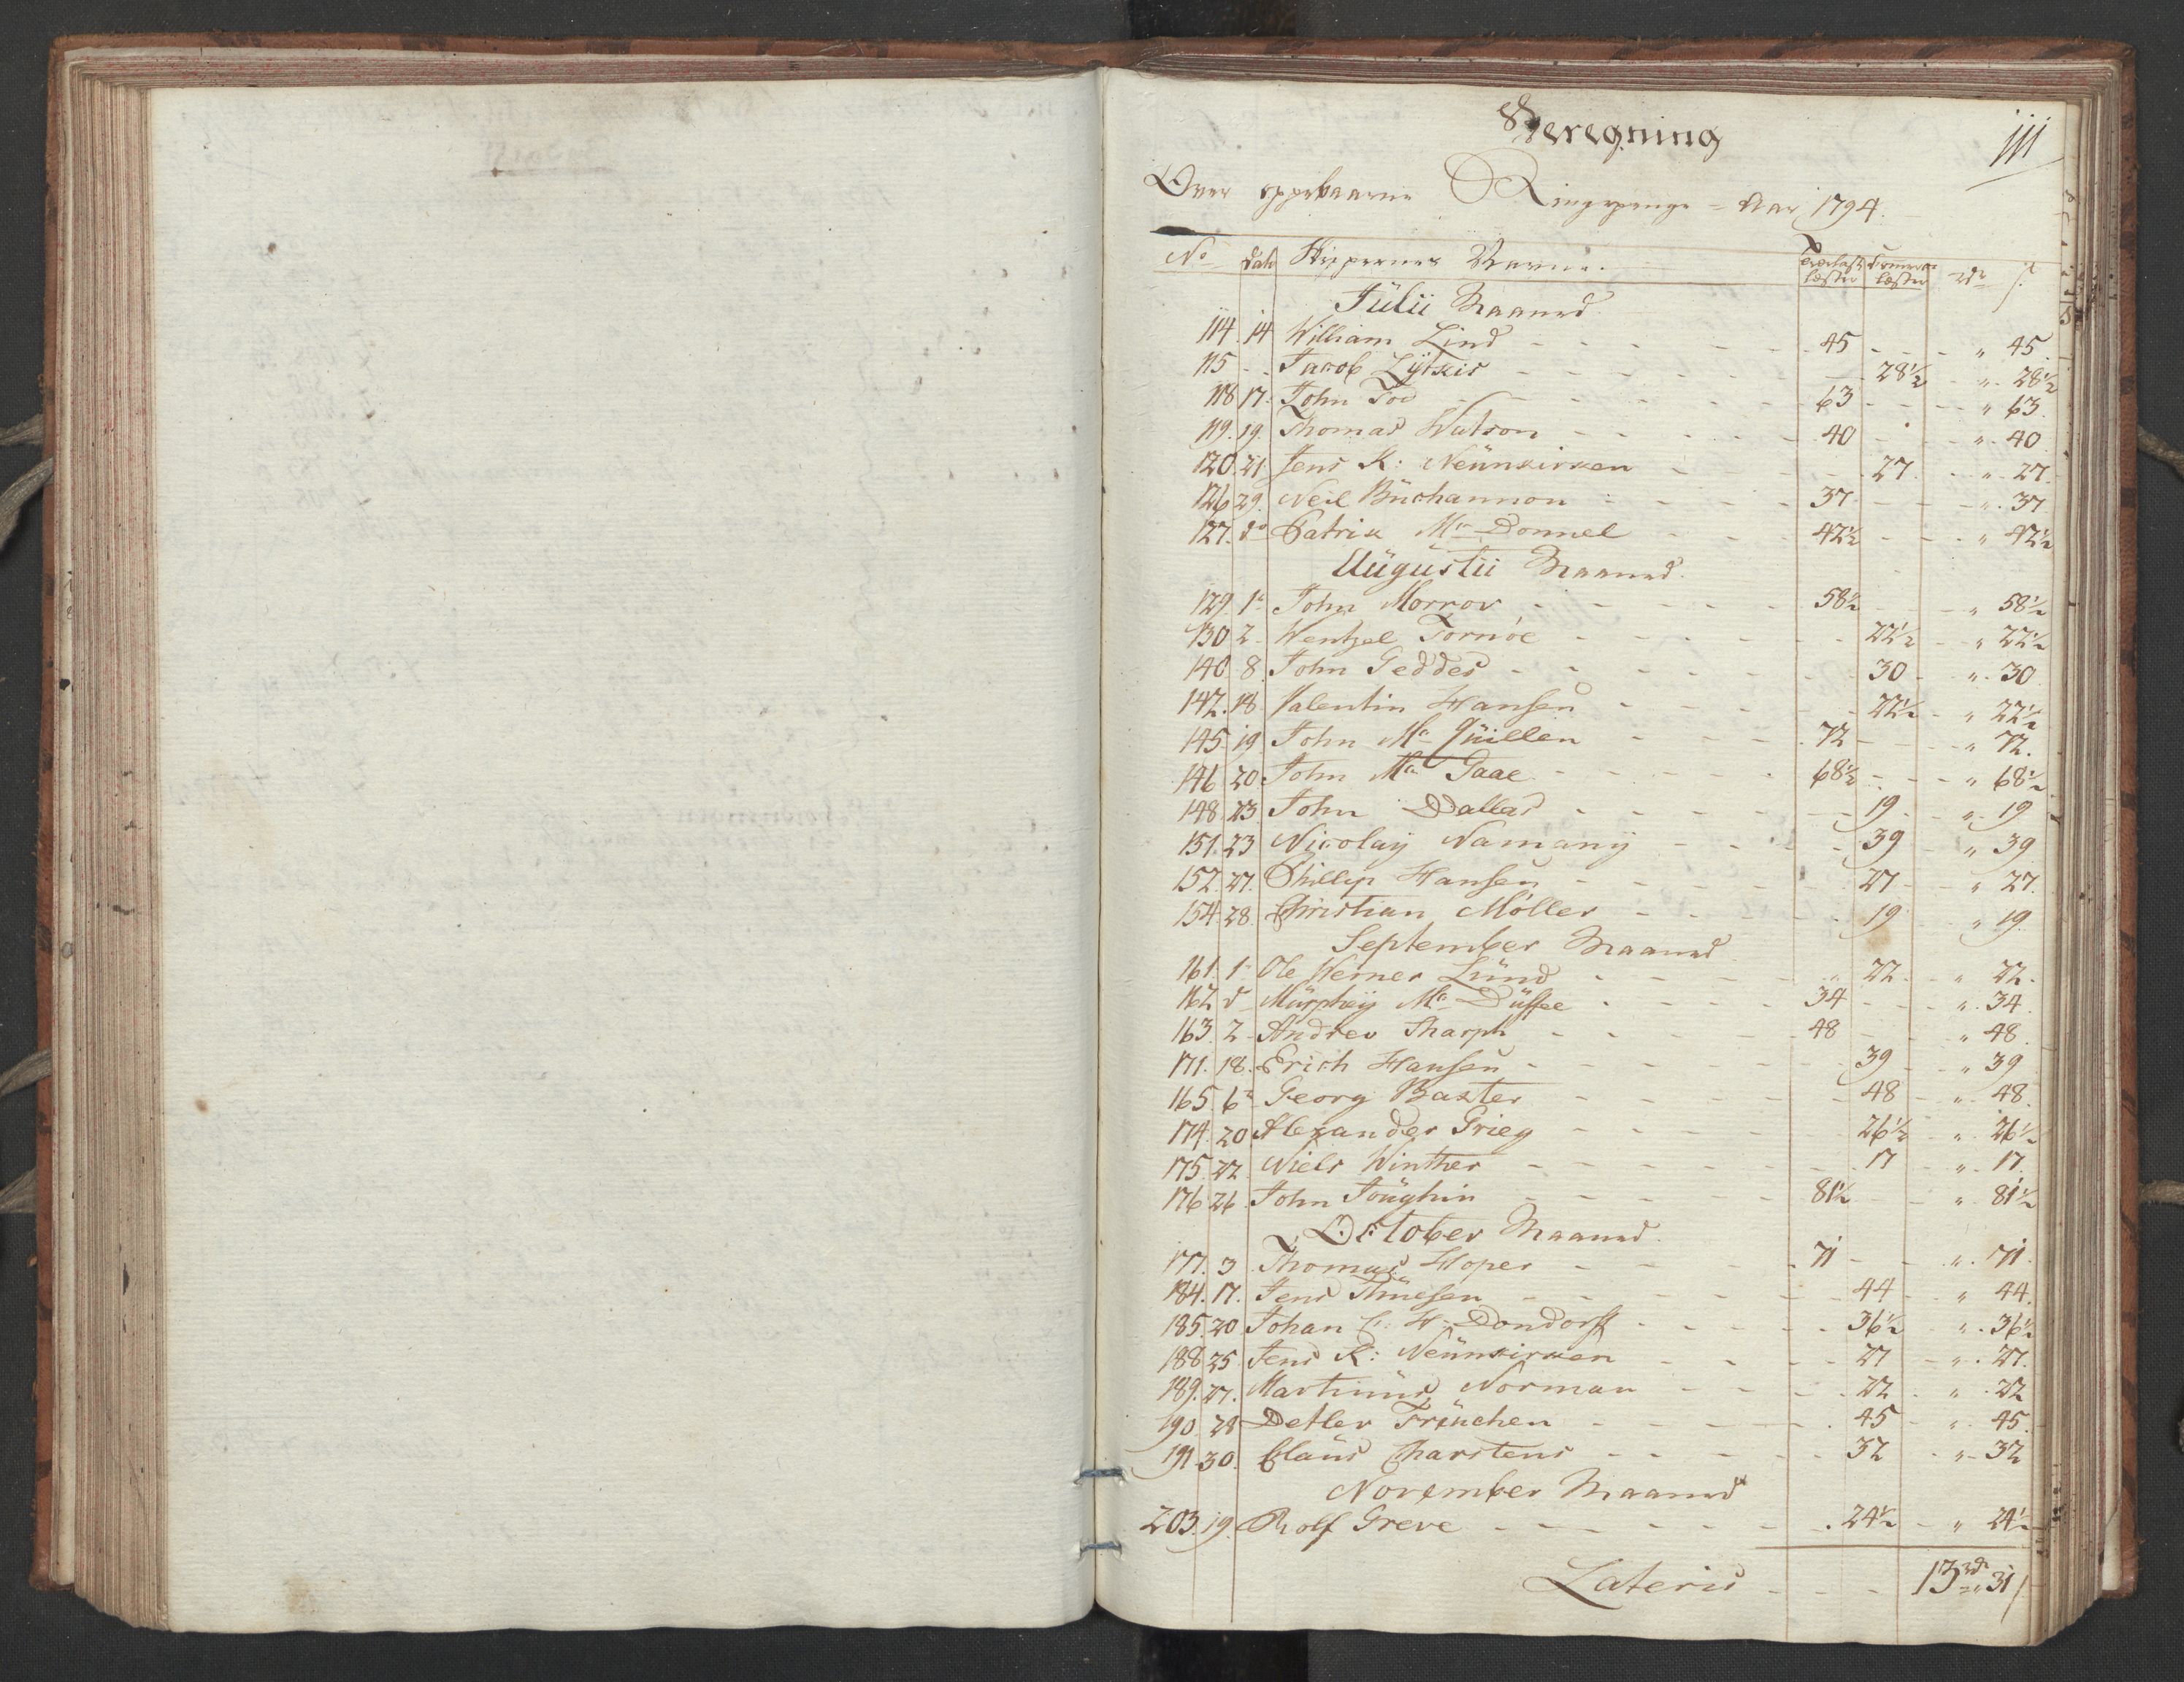 111
Beregning
Over oppebaarne Ringepenge = Aar 1794.
No Dato Skippernes Navne. Træelast læster Commerce læster rdr s.
Julii Maaned
114. 14 William Lind - - - - 45 - - " 45.
115 - - Jacob Lÿtkis - - - - 28½ - " - 28½
118 17. John Tod - - - - 63 - - " 63.
119. 19. Thomas Watson - - - - 40 - - " - 40
120. 21. Jens K: Neünkirken - - - - 27 - " - 27.
126 29. Neil Büchannon - - - - 37 - - " . 37
127. do Patrik Mc Donnel - - - 42½ - - " 42½
Aügüstii Maaned.
129. 1te John Morrov - - - - 58½ - - " 58½
130 2 - Wentzel Tornöe - - - - 22½ - " 22½
140. 8. John Geddes - - - - 30 - " . 30
142. 18. Valentin Hansen - - - - 22½ - " 22½
145. 19 John Mc Qüillen - - - 72 - - " 72.
146 20. John Mc Gaae - - - - 68½ - - " 68½
148. 23. John Dallas - - - - 19 - " - 19
151. 23 Nicolaÿ Namanÿ - - - - 39 " 39
152. 27. Phillip Hansen - - - - 27 - " 27.
154. 28. Christian Møller - - - 19 " 19.
September Maaned
161. 1te Ole Werner Lünd - - - - " 22 - " 22.
162. d Mürphÿ Mc Düffee - - - - 34 - - " . 34
163. 2 - Andrev Sharph - - - - 48 - " 48.
171. 18. Erich Hansen - - - - 39 - " 39
165. 6te Georg Baxter - - - - 48 - " - 48.
174. 20 Alexander Grieg - - - - 26½ - " . 26½
175. 22 Niels Winther - - - - 17 - " . 17.
176. 26. John Toüghin - - - - 81½ - - " . 81½
October Maaned.
177. 3 Thomas Hoper - - - - 71 - - " . 71.
184. 17. Jens Thüesen - - - - 44 - " 44.
185. 20 Johan C: H: Dondorff - - - - 36½ " . 36½
188 25 Jens K: Neünkirken - - - - 27 - " . 27.
189. 27. Martinüs Norman - - - - 22 - " . 22
190 28 Detlev Früchen - - - - 45 - " . 45.
191. 30. Claüs Charstens - - - - 32 - " - 32
November Maaned
203. 19. Rolf Greve - - - - 24½ - " 24½
Lateris - - - 13 rd " 31 s